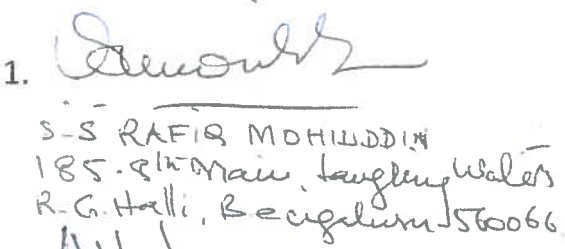 1.
S-S RAFIQ MOHIUDDIN
185. 8th Main, Laughing Waters
R.G. Halli, Bengaluru-560066